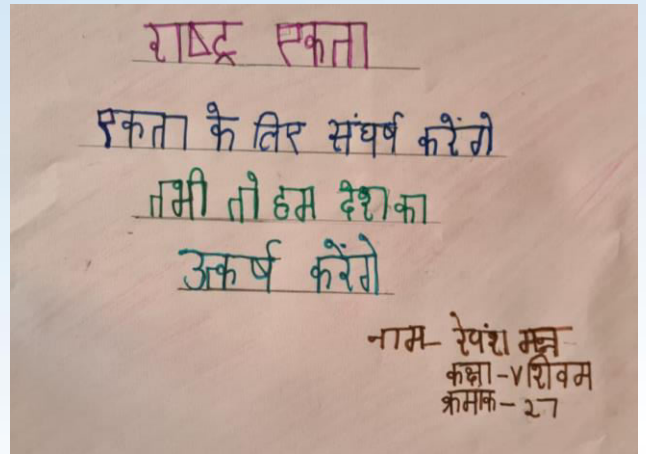 राष्ट्र एकता
एकता के लिए संघर्ष करेंगे
तभी तो हम देश का
उत्कर्ष करेंगे
नाम-
कक्षा - V शिवम
क्रमांक - 27